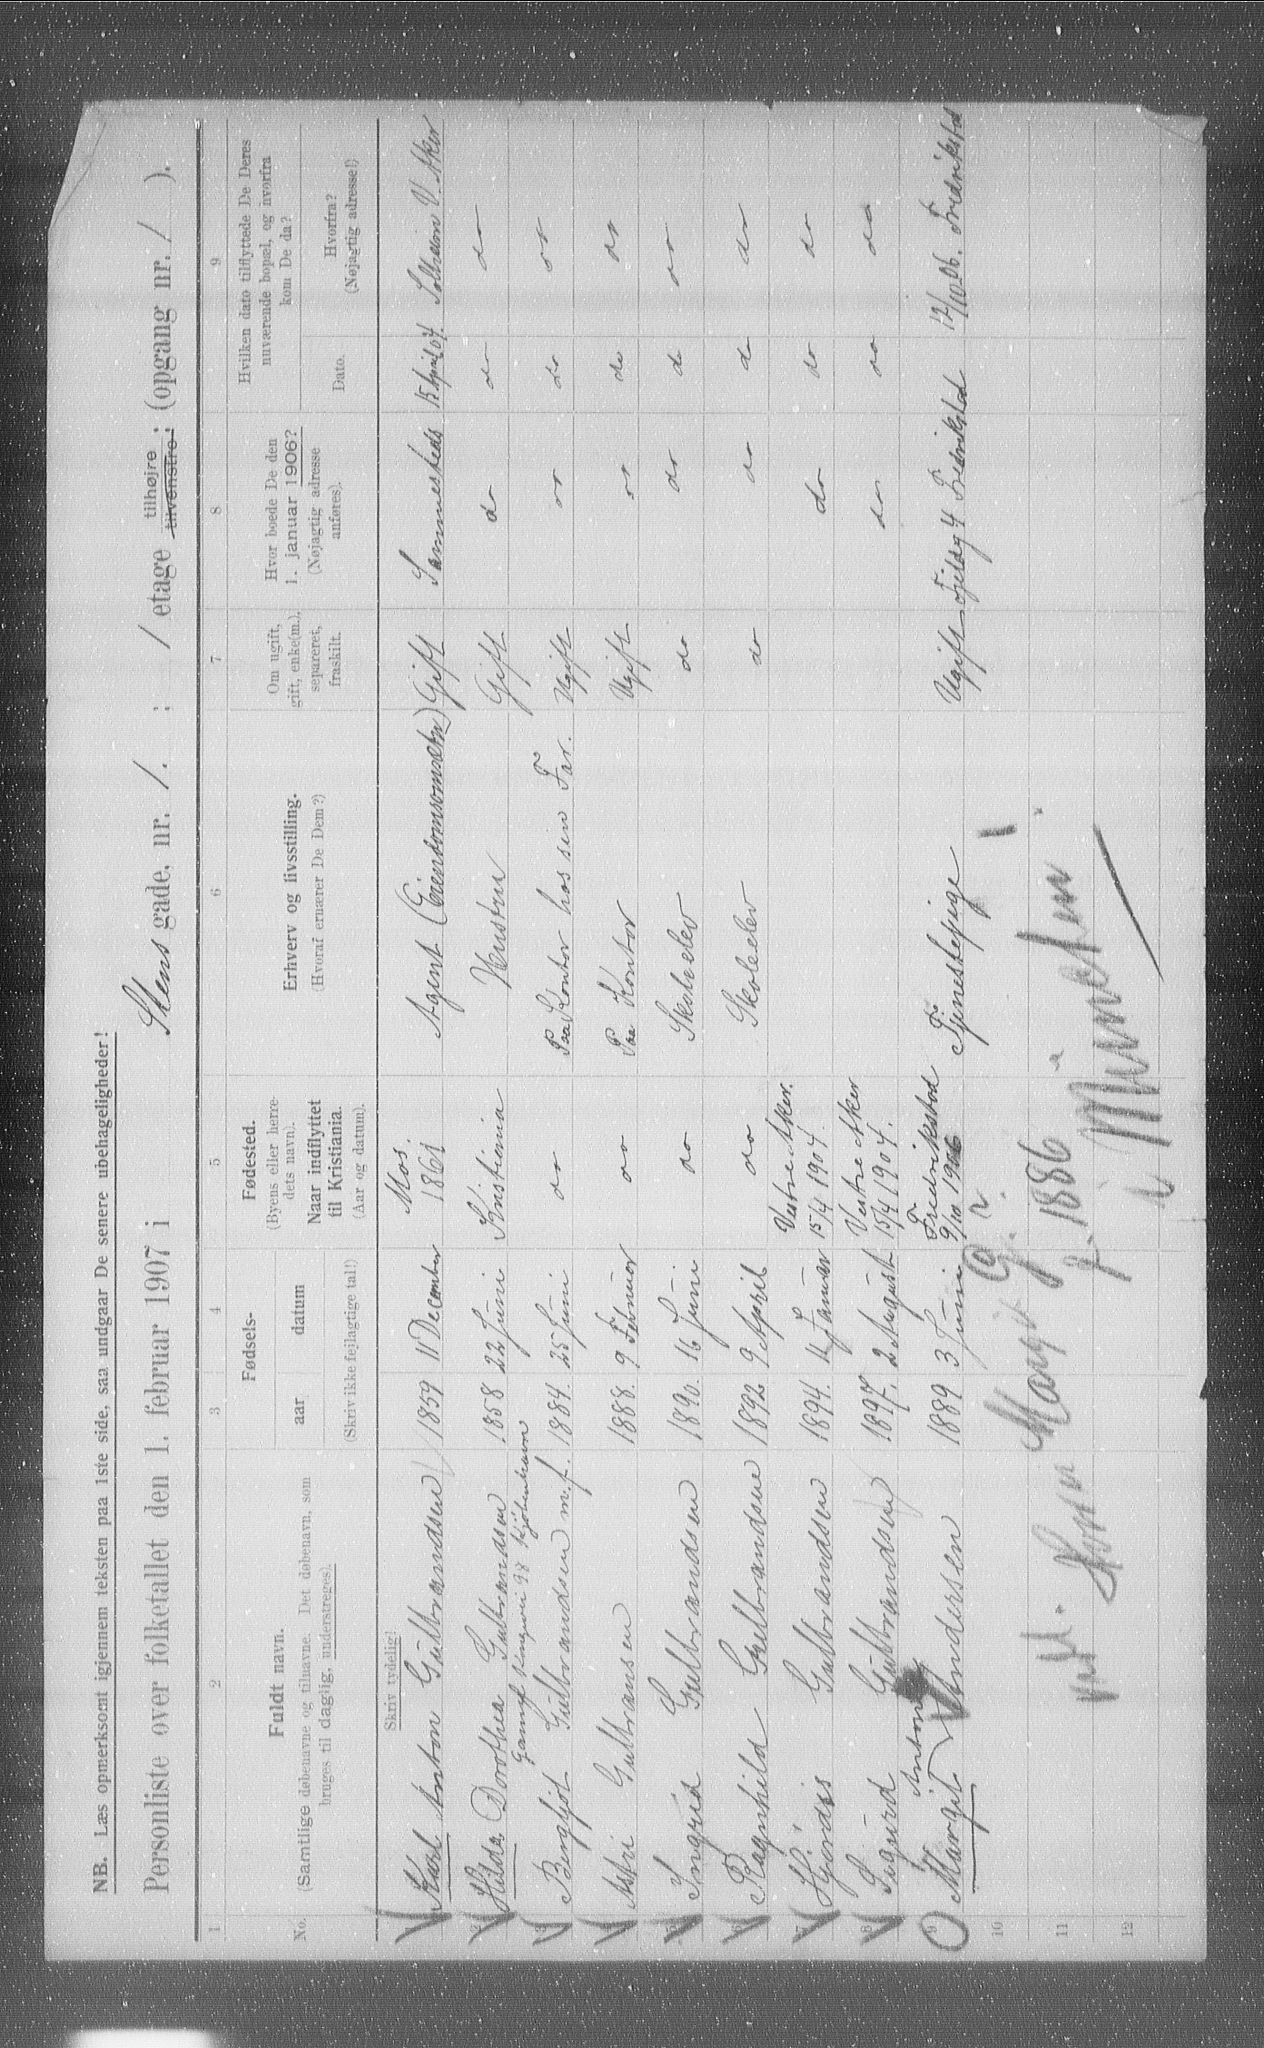 NB. Læs opmerksomt igjennem teksten paa 1ste side, saa undgaar De senere ubehageligheder!
Personliste over folketallet den 1. februar 1907 i Stens gade, nr. 1. ; 1 etage tilhøjre tilvenstre ; (opgang nr. 1 ).
1 2 3 4 5 6 7 8 9
No.
Fuldt navn.
(Samtlige døbenavne og tilnavne. Det døbenavn, som
bruges til daglig, understreges).
Fødsels-
aar datum
(Skriv ikke fejlagtige tal!)
Fødested.
(Byens eller herre-
dets navn).
Naar indflyttet
til Kristiania.
(Aar og datum).
Erhverv og livsstilling.
(Hvoraf ernærer De Dem?)
Om ugift,
gift, enke(m.),
separeret,
fraskilt.
Hvor boede De den
1. januar 1906?
(Nøjagtig adresse
anføres).
Hvilken dato tilflyttede De Deres
nuværende bopæl, og hvorfra
kom De da?
Dato.
Hvorfra?
(Nøjagtig adresse!)
Skriv tydelig!
Karl Anton Gulbrandsen 1859 11 December Mos. 1861 Agent (Eiendomsomsætn) Gift Sammesteds 15 April 04. Solheim V. Aker
2 Hilda Dorothea Gulbrandsen 1858 22 Juni Kristiania Hustru Gift do do do
3 Bergljot Gulbrandsen m.f. 1884. 25 Juni do Paa Kontor hos sin Far. Ugift do do do
4 Astri Gulbransen 1888. 9 Februar do Paa Kontor Ugift do do do
5 Ingrid Gulbrandsen 1890. 16 Juni do Skoleelev do do do do
6 Ragnhild Gulbrandsen 1892 9 April do Skoleelev do do do do
7 Hjørdis Gulbrandsen 1894. 14 Januar Vestre Aker. 15/4 1904. do do do
8 Sigurd Gulbrandsen 1897. 2 August Vestre Aker 15/4 1904. do do do
9 Margit Antonie Andersen 1889 3 Juni Fredrikstad 9/10 1906 Tjenestepige Ugift Fjeldg 4 Fredrikstad 12/10 06. Fredrikstad
10
11
12
Margit
f. 1886